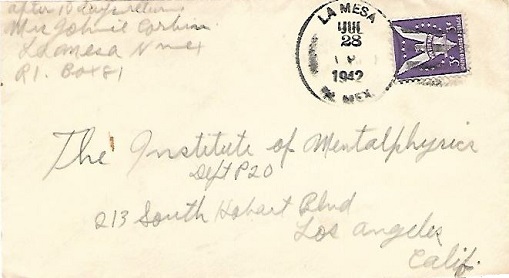 after 10 days return
Mrs Johnie Corbin
La Mesa N mex
R1. Box 81
LA MESA
JUL
28
1942
N. MEX.
3¢
The Institute of Mentalphysics
Dept P20
213 South Hobart Blvd
Los Angeles
Calif.